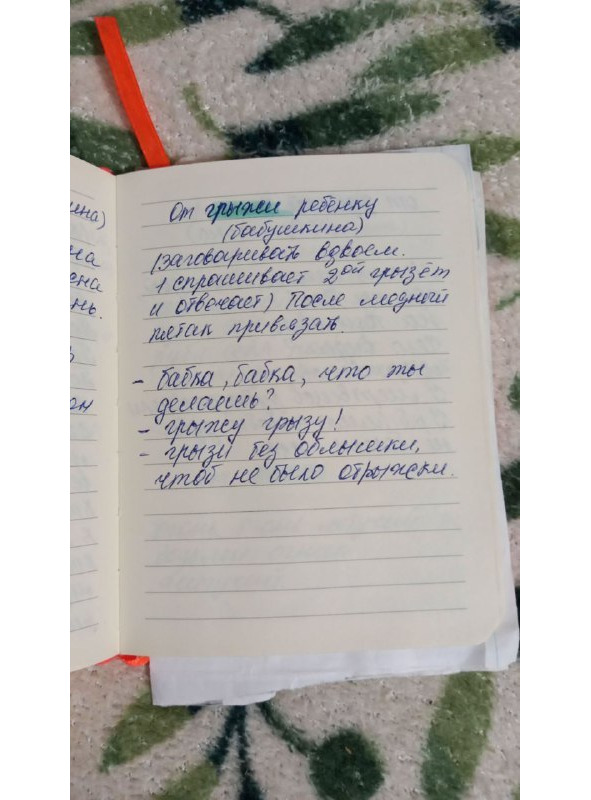 ина)
на
сна
нь.
он
От грыжи ребёнку
(бабушкина)
(заговаривать вдвоем.
1 спрашивает 2ой грызёт
и отвечает) После медный
пятак привязать.
- бабка, бабка, что ты
делаешь?
- грыжу грызу!
- грызи без облышки,
чтоб не было отрыжки.